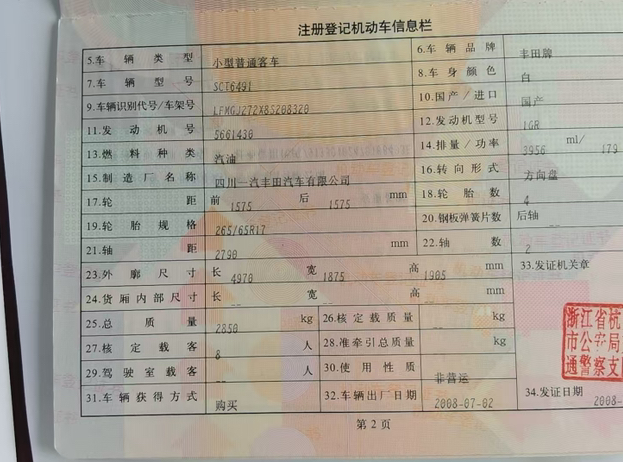 注册登记机动车信息栏
5.车辆类型 小型普通客车 6.车辆品牌 丰田牌
7.车辆型号 SCT6491 8.车身颜色 白
9.车辆识别代号/车架号 LFMGJ272X8S208320 10.国产/进口 国产
11.发动机号 5601430 12.发动机型号 1GR
13.燃料种类 汽油 14.排量/功率 3956 ml/ 179
15.制造厂名称 四川一汽丰田汽车有限公司 16.转向形式 方向盘
17.轮距 前 1575 后 1575 mm 18.轮胎数 4
19.轮胎规格 265/65R17 20.钢板弹簧片数 后轴 --
21.轴距 2790 mm 22.轴数 2
23.外廓尺寸 长 4970 宽 1875 高 1905 mm 33.发证机关章
24.货厢内部尺寸 长 -- 宽 -- 高 -- mm
25.总质量 2850 kg 26.核定载质量 -- kg
27.核定载客 8 人 28.准牵引总质量 -- kg
29.驾驶室载客 -- 人 30.使用性质 非营运
31.车辆获得方式 购买 32.车辆出厂日期 2008-07-02 34.发证日期 2008-
浙江省杭
市公安局
通警察支
第2页